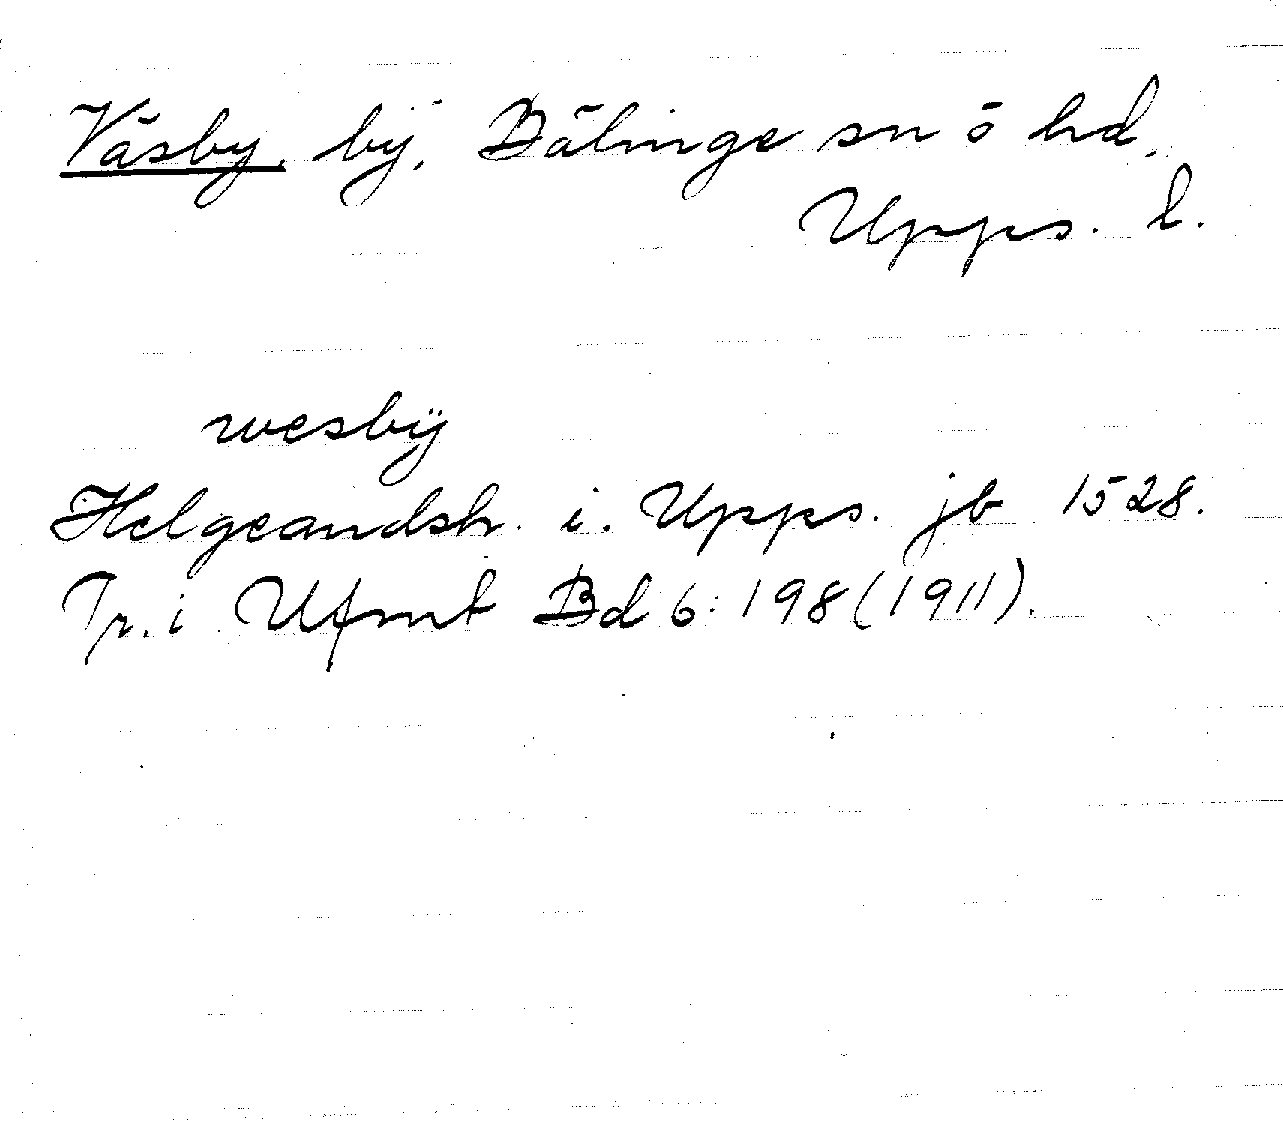 Väsby, by, Bälinge sn o hd,
Upps. l.
wesbÿ
Helgeandsh. i. Upps. jb 1528.
Tr. i Ufmt Bd 6: 198 (1911).